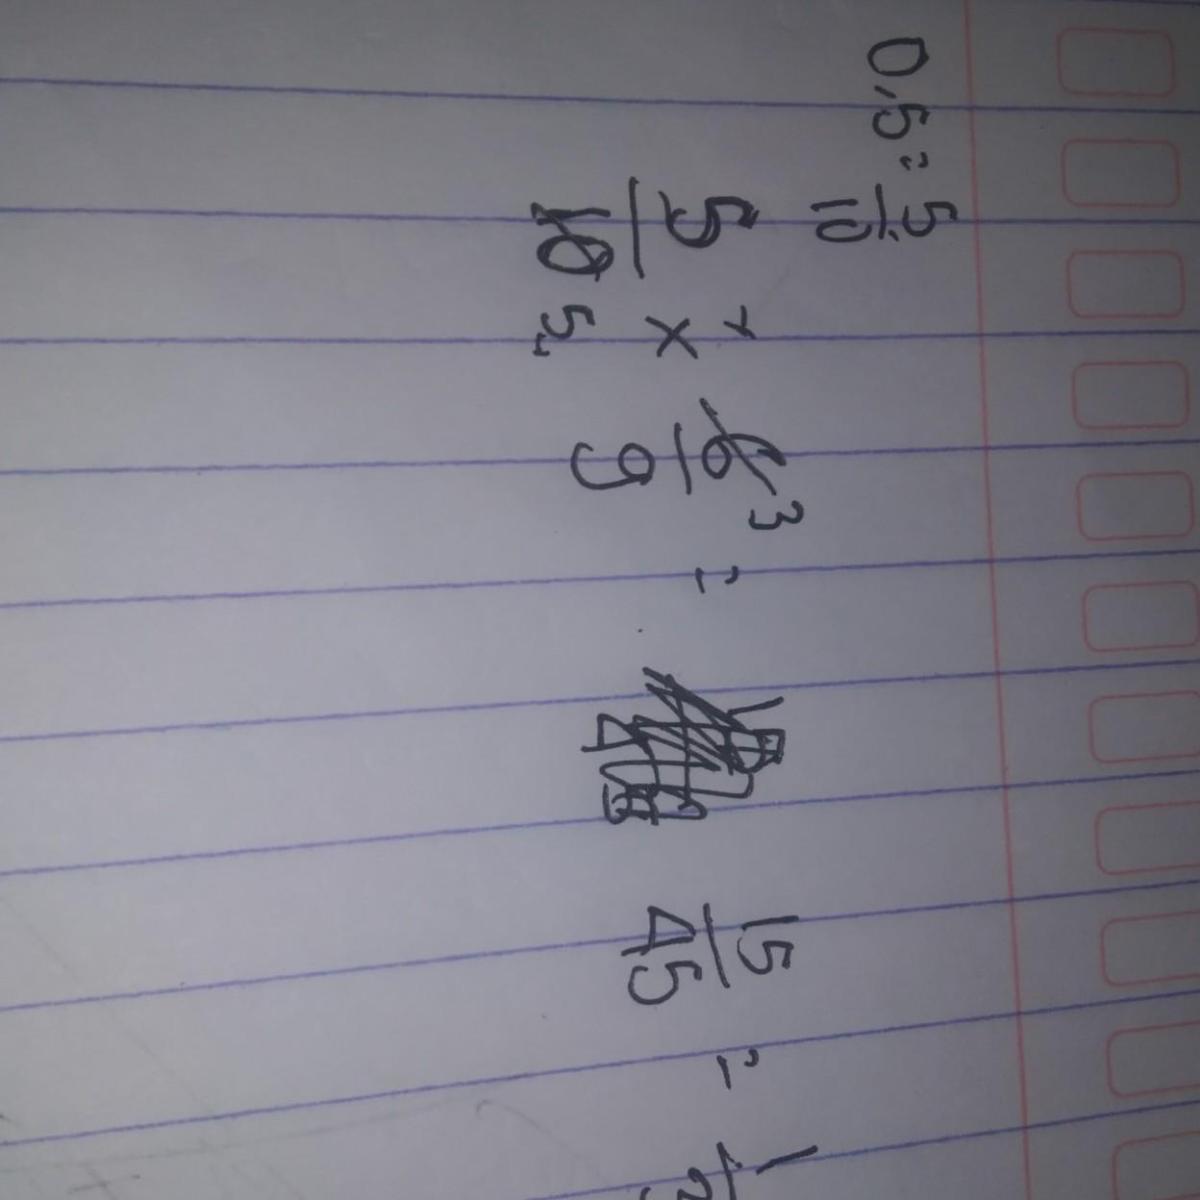 0,5 = 5/10
5/10 5 × 6/9 3 = 15/45 = 1/3